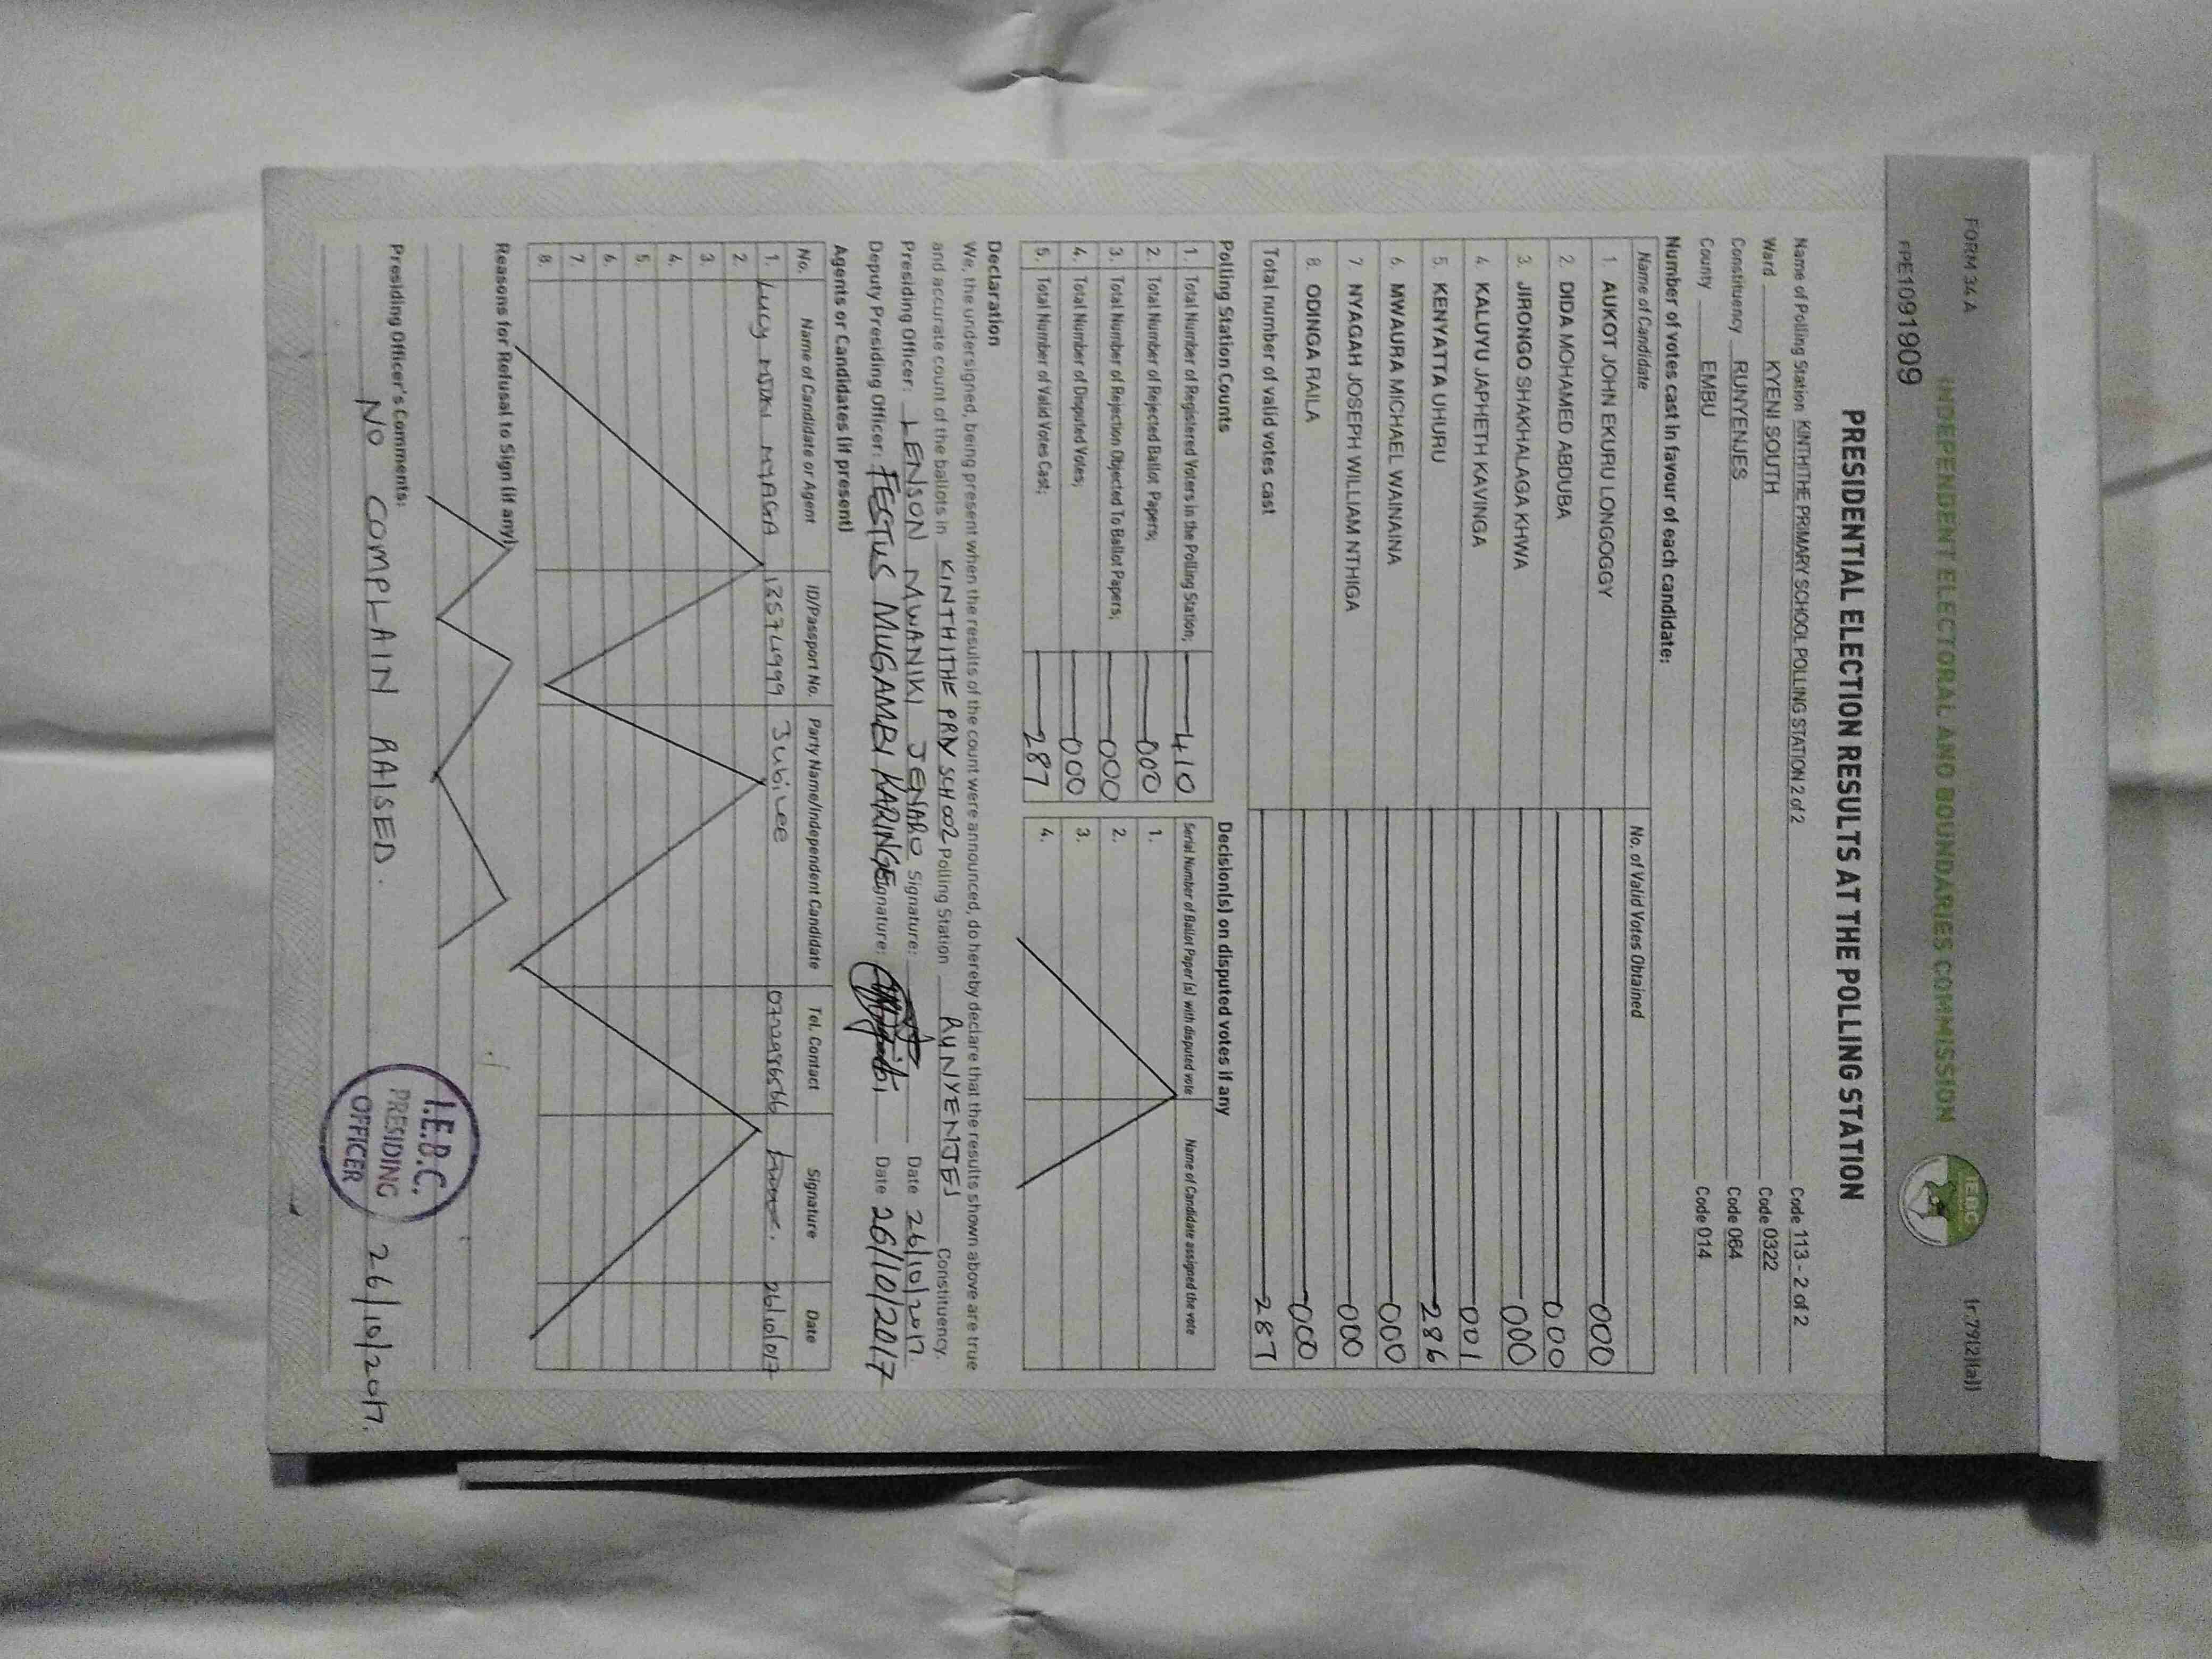 FORM 34 A
(r.79(2)(a))
INDEPENDENT ELECTORAL AND BOUNDARIES COMMISSION
IEBC
FPE1091909
PRESIDENTIAL ELECTION RESULTS AT THE POLLING STATION
Name of Polling Station KINTHITHE PRIMARY SCHOOL POLLING STATION 2 of 2 Code 113 - 2 of 2
Ward KYENI SOUTH Code 0322
Constituency RUNYENJES Code 064
County EMBU Code 014
Number of votes cast in favour of each candidate:
Name of Candidate No. of Valid Votes Obtained
1. AUKOT JOHN EKURU LONGOGGY 000
2. DIDA MOHAMED ABDUBA 000
3. JIRONGO SHAKHALAGA KHWA 000
4. KALUYU JAPHETH KAVINGA 001
5. KENYATTA UHURU 286
6. MWAURA MICHAEL WAINAINA 000
7. NYAGAH JOSEPH WILLIAM NTHIGA 000
8. ODINGA RAILA 000
Total number of valid votes cast 287
Polling Station Counts
1. Total Number of Registered Voters in the Polling Station; 410
2. Total Number of Rejected Ballot Papers; 000
3. Total Number of Rejection Objected To Ballot Papers; 000
4. Total Number of Disputed Votes; 000
5. Total Number of Valid Votes Cast; 287
Decision(s) on disputed votes if any
Serial Number of Ballot Paper (s) with disputed vote Name of Candidate assigned the vote
1.
2.
3.
4.
Declaration
We, the undersigned, being present when the results of the count were announced, do hereby declare that the results shown above are true
and accurate count of the ballots in KINTHITHE PRY SCHOOL Polling Station RUNYENJES Constituency.
Presiding Officer: LENSON MWANIKI JENARO Signature: Date 26/10/2017.
Deputy Presiding Officer: FESTUS MUGAMBI KARINGE Signature: Date 26/10/2017
Agents or Candidates (if present)
No. Name of Candidate or Agent ID/Passport No. Party Name/Independent Candidate Tel. Contact Signature Date
1. Lucy NYAGA 13574999 Jubilee 26/10/017
2.
3.
4.
5.
6.
7.
8.
Reasons for Refusal to Sign (if any)
Presiding Officer's Comments:
NO COMPLAIN RAISED.
I.E.B.C.
PRESIDING
OFFICER
26/10/2017.